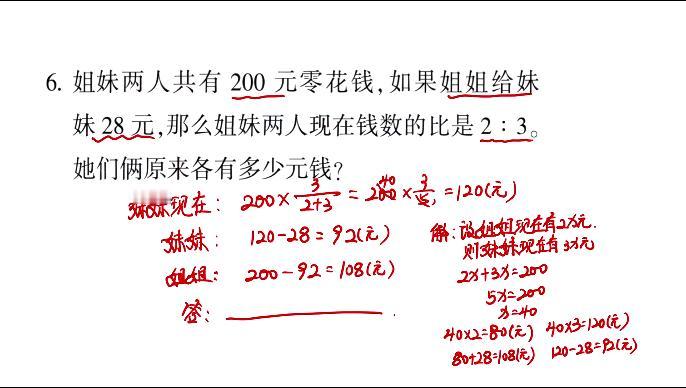 6. 姐妹两人共有 200 元零花钱,如果姐姐给妹
妹 28 元,那么姐妹两人现在钱数的比是 2 : 3。
她们俩原来各有多少元钱?
妹妹现在: 200×3/(2+3) = 200×3/5 = 120(元)
40
1
妹妹: 120-28=92(元)
姐姐: 200-92=108(元)
答:
解:设姐姐现在有2x元.
则妹妹现在有3x元
2x+3x=200
5x=200
x=40
40×2=80(元) 40×3=120(元)
80+28=108(元) 120-28=92(元)